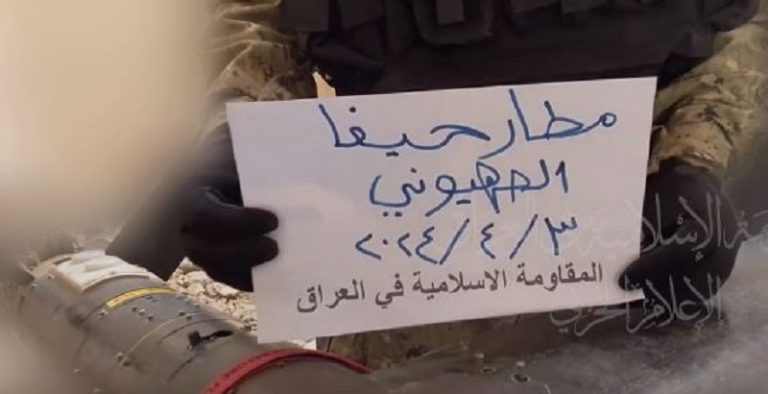 مطار حيفا
الصهيوني
٢٠٢٤/٤/٣
المقاومة الاسلامية في العراق
الإعلام الحربي